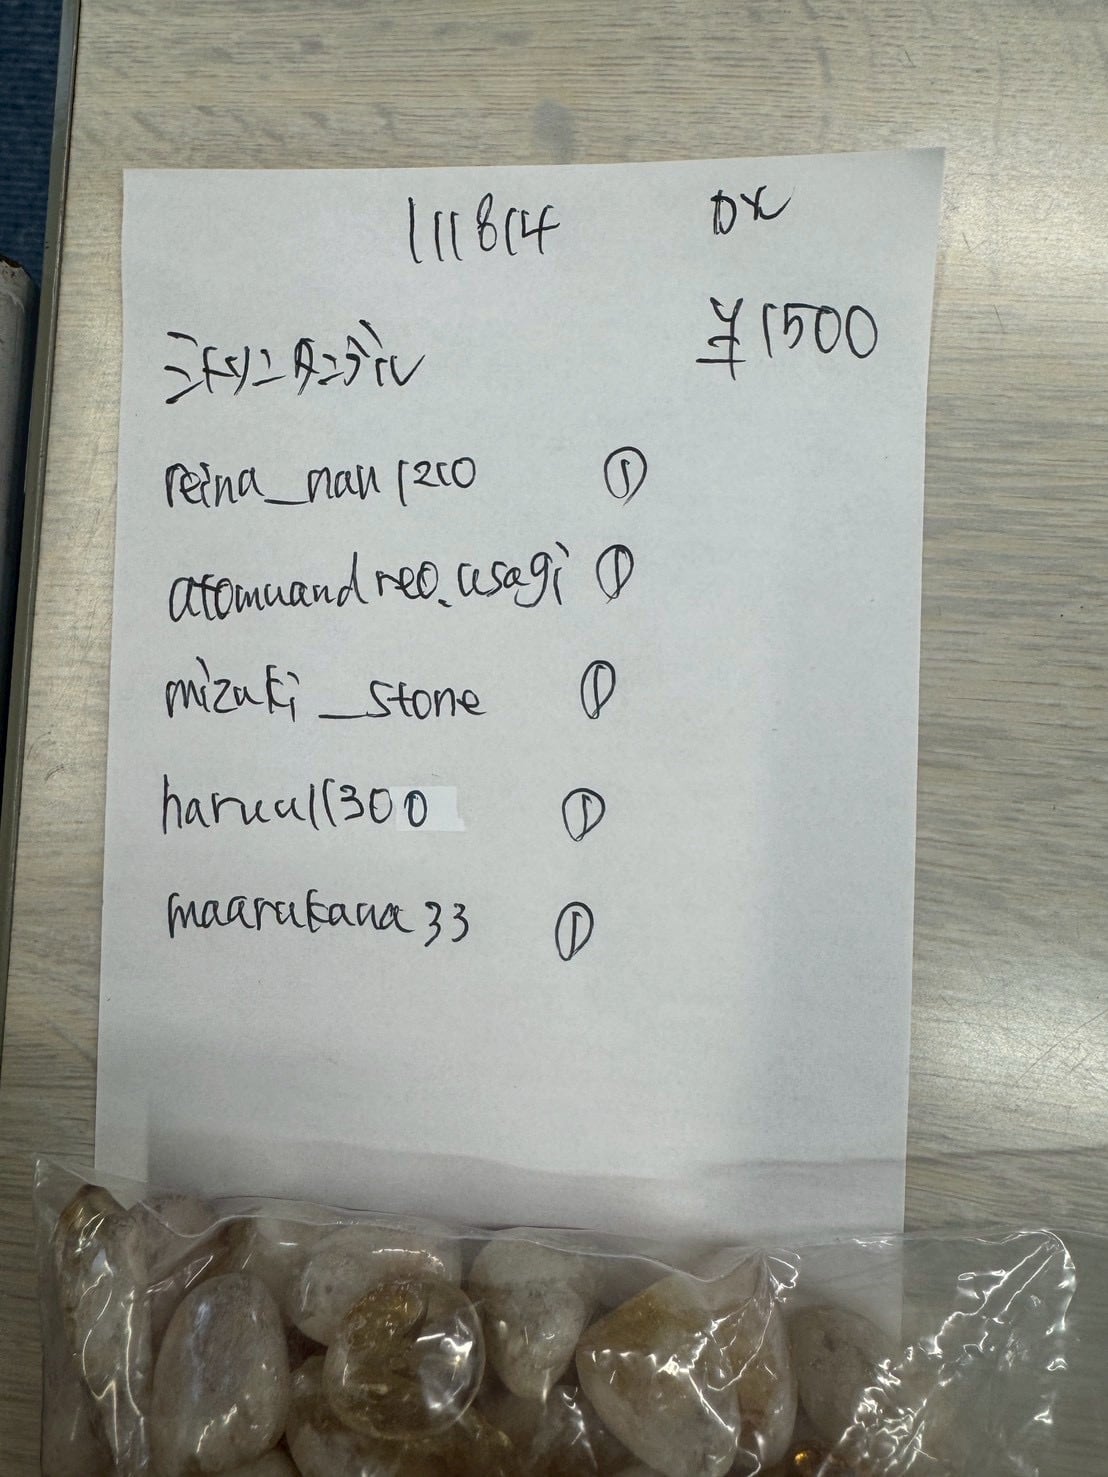 111814 DX
¥1500
reina_nan1210
atomuandreo.usagi ①
mizuki_stone ①
harua11300 ①
maarukana33 ①